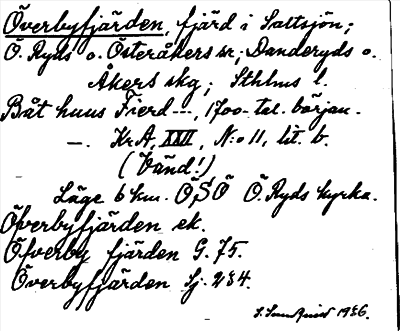 Överbyfjärden, fjärd i Saltsjön;
Ö. Ryds o. Österåkers snr; Danderyds o.
Åkers skg; Sthlms l.
Båt huus Fierd ---, 1700-tal. början.
—. KrA, XXVI, N:o 11, lit. b.
(Vänd!)
Läge 6 km. ÖSÖ Ö. Ryds kyrka.
Överbyfjärden ek.
Öfverby fjärden G. 75.
Överbyfjärden Sj. 234.
1936.